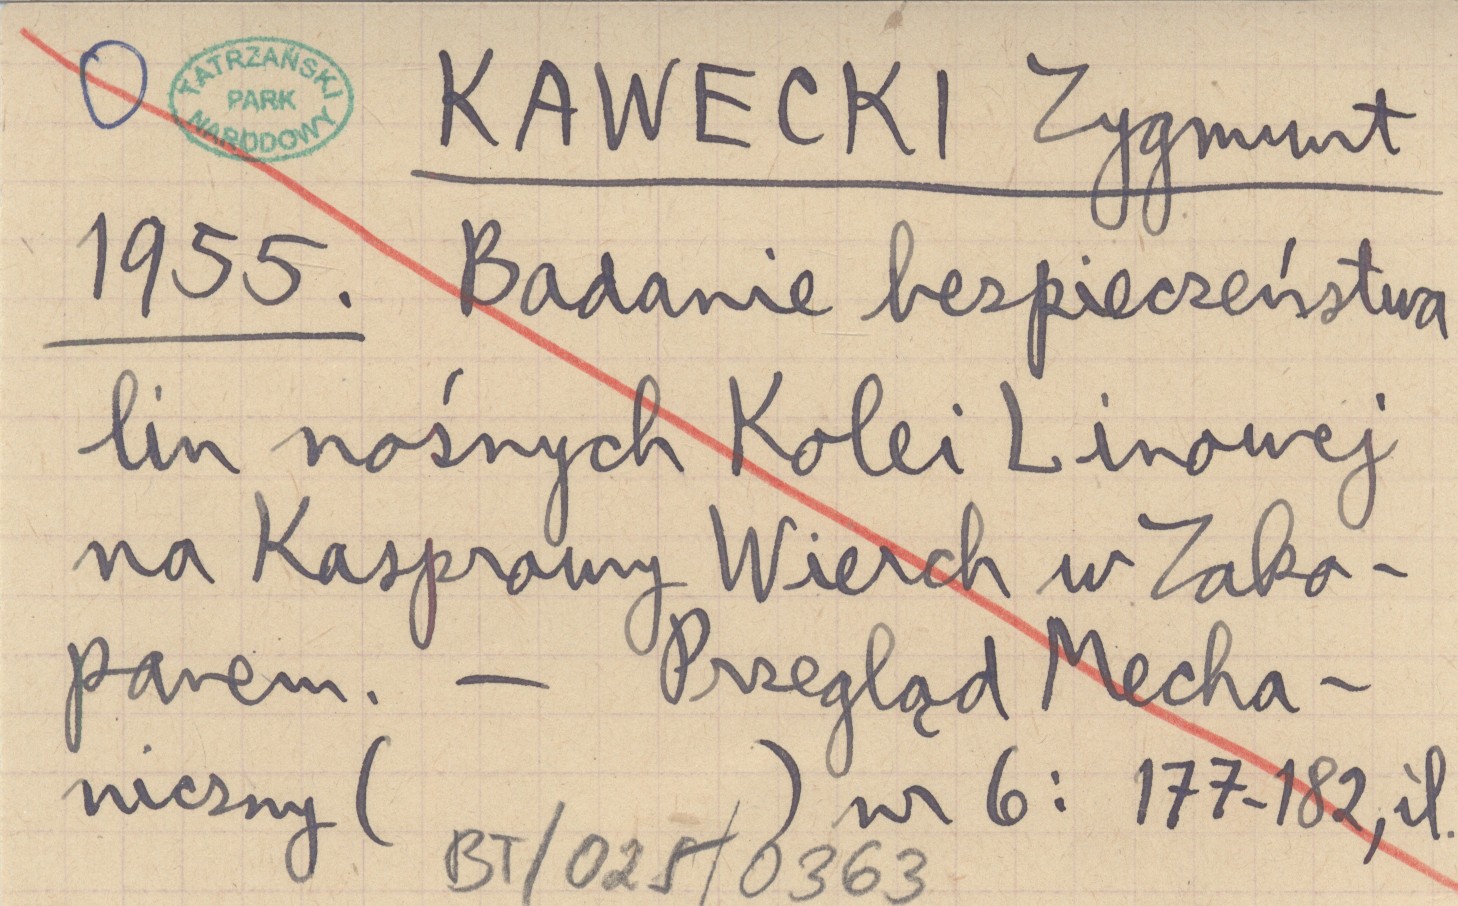 TATRZAŃSKI
PARK
NARODOWY
KAWECKI Zygmunt
1955. Badanie bezpieczeństwa
lin nośnych Kolei Linowej
na Kasprowy Wierch w Zako-
panem. — Przegląd Mecha-
niczny ( ) nr 6: 177-182, il.
BT/025/0363